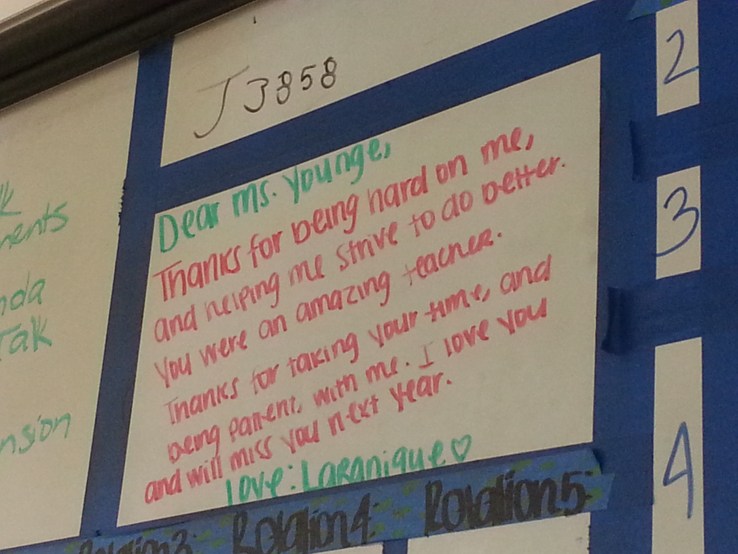 J3858
2
Dear Ms. Younge,
Thanks for being hard on me,
and helping me strive to do better.
You were an amazing teacher.
Thanks for taking your time, and
being patient, with me. I love you
and will miss you next year.
Love: LaRanique♡
3
4
Rotation 4
Rotation 5
nda
Talk